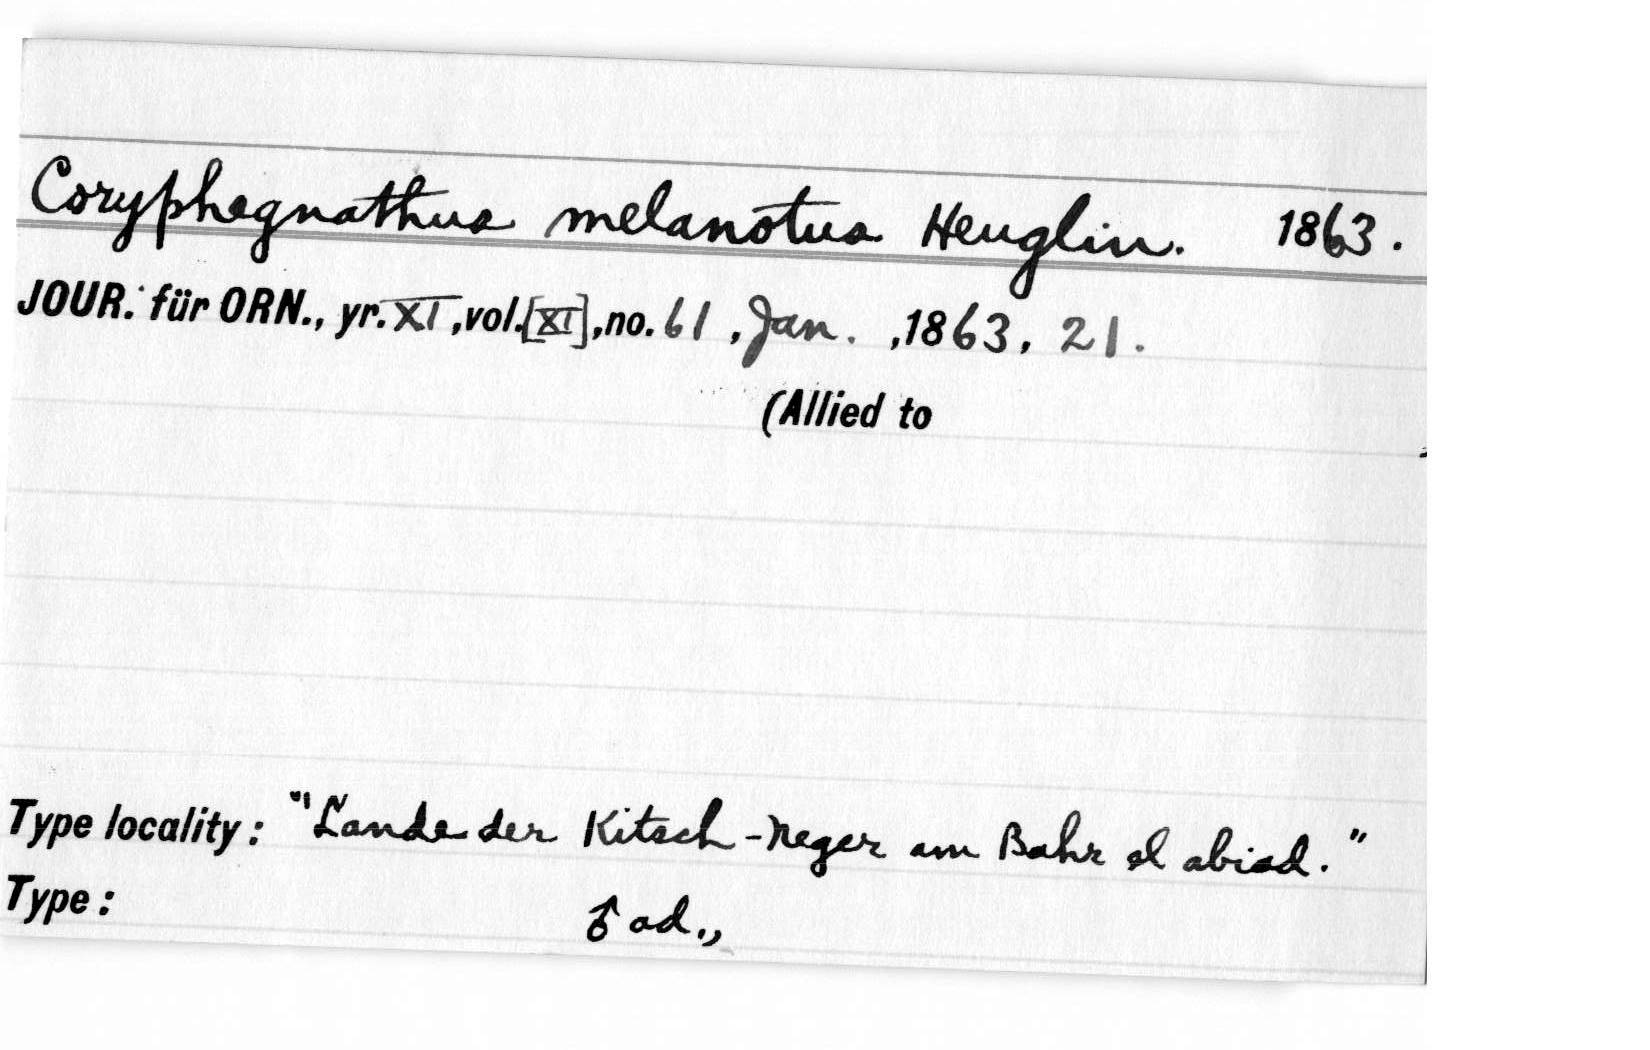 Coryphegnathus melanotus Heuglin. 1863.
JOUR. für ORN., yr. XI, vol. [XI], no. 61, Jan., 1863, 21.
(Allied to
Type locality: "Lande der Kitsch-neger am Bahr el abiad."
Type: ♂ ad.,